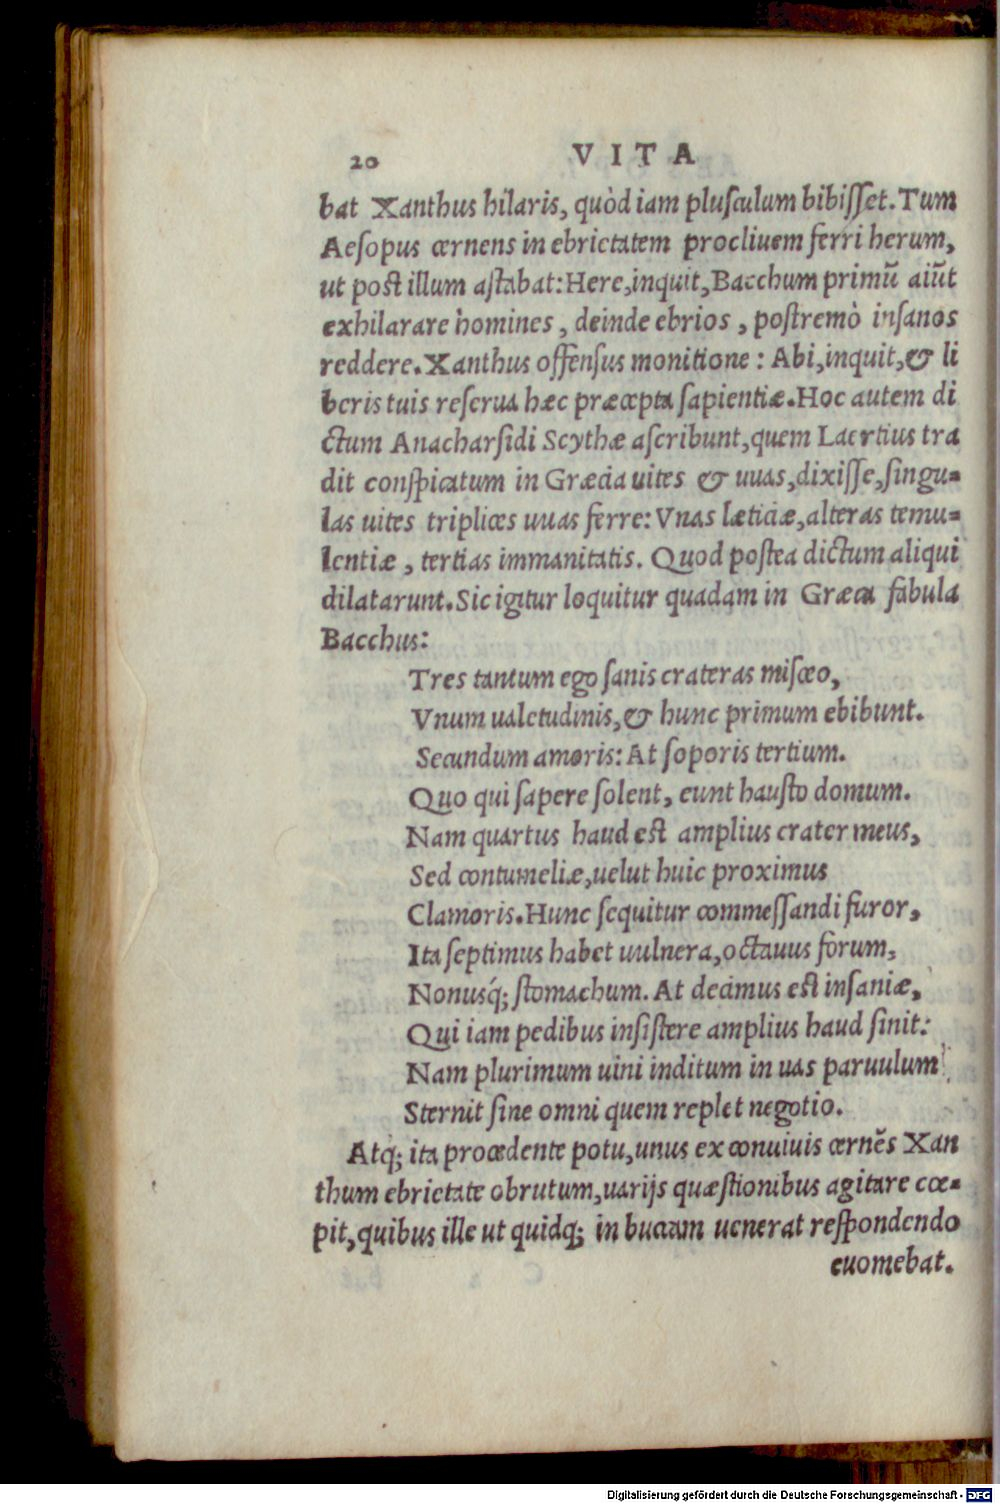 20 VITA
bat Xanthus hilaris, quòd iam pluſculum bibiſſet. Tum
Aeſopus cernens in ebrietatem procliuem ferri herum,
ut poſt illum aſtabat: Here, inquit, Bacchum primū aiūt
exhilarare homines, deinde ebrios, poſtremò inſanos
reddere. Xanthus offenſus monitione: Abi, inquit, & li
beris tuis reſerua hæc præcepta ſapientiæ. Hoc autem di
ctum Anacharſidi Scythæ aſcribunt, quem Laertius tra
dit conſpicatum in Græcia uites & uuas, dixiſſe, ſingu=
las uites triplices uuas ferre: Vnas læticiæ, alteras temu=
lentiæ, tertias immanitatis. Quod poſtea dictum aliqui
dilatarunt. Sic igitur loquitur quadam in Græca fabula
Bacchus:
Tres tantum ego ſanis crateras miſceo,
Vnum ualetudinis, & hunc primum ebibunt.
Secundum amoris: At ſoporis tertium.
Quo qui ſapere ſolent, eunt hauſto domum.
Nam quartus haud eſt amplius crater meus,
Sed contumeliæ, uelut huic proximus
Clamoris. Hunc ſequitur commeſſandi furor,
Ita ſeptimus habet uulnera, octauus forum,
Nonusq́; ſtomachum. At decimus eſt inſaniæ,
Qui iam pedibus inſiſtere amplius haud ſinit:
Nam plurimum uini inditum in uas paruulum
Sternit ſine omni quem replet negotio.
Atq; ita procedente potu, unus ex conuiuis cernēs Xan
thum ebrietate obrutum, uarijs quæſtionibus agitare cœ=
pit, quibus ille ut quidq; in buccam uenerat reſpondendo
euomebat.
Digitalisierung gefördert durch die Deutsche Forschungsgemeinschaft - DFG